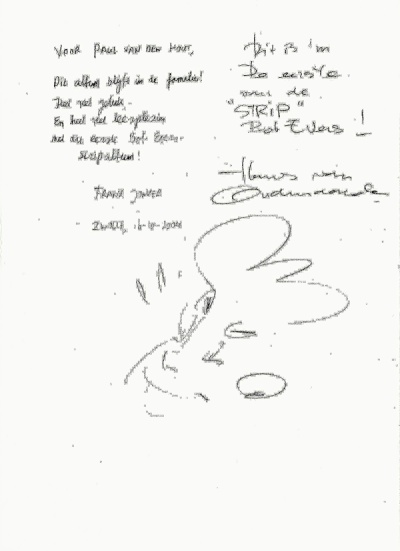 Voor Paul van den Hout,
Dit album blijft in de familie!
Heel veel geluk -
En heel veel leesplezier
met die eerste Bob Evers-
stripalbum!
Frank Jonker
Zwolle, 6-10-2001
Dit is 'm
De eerste
van de
"STRIP"
Bob Evers!
Hans van
Oudenaarden